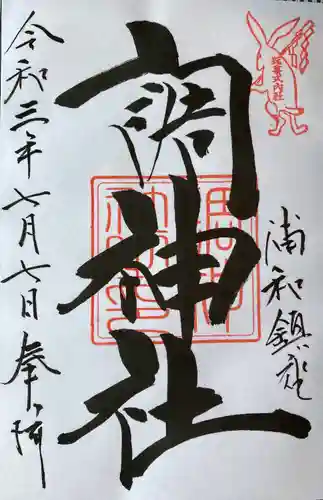 浦和鎮守
調神社
令和三年七月七日奉拝
延喜式内社